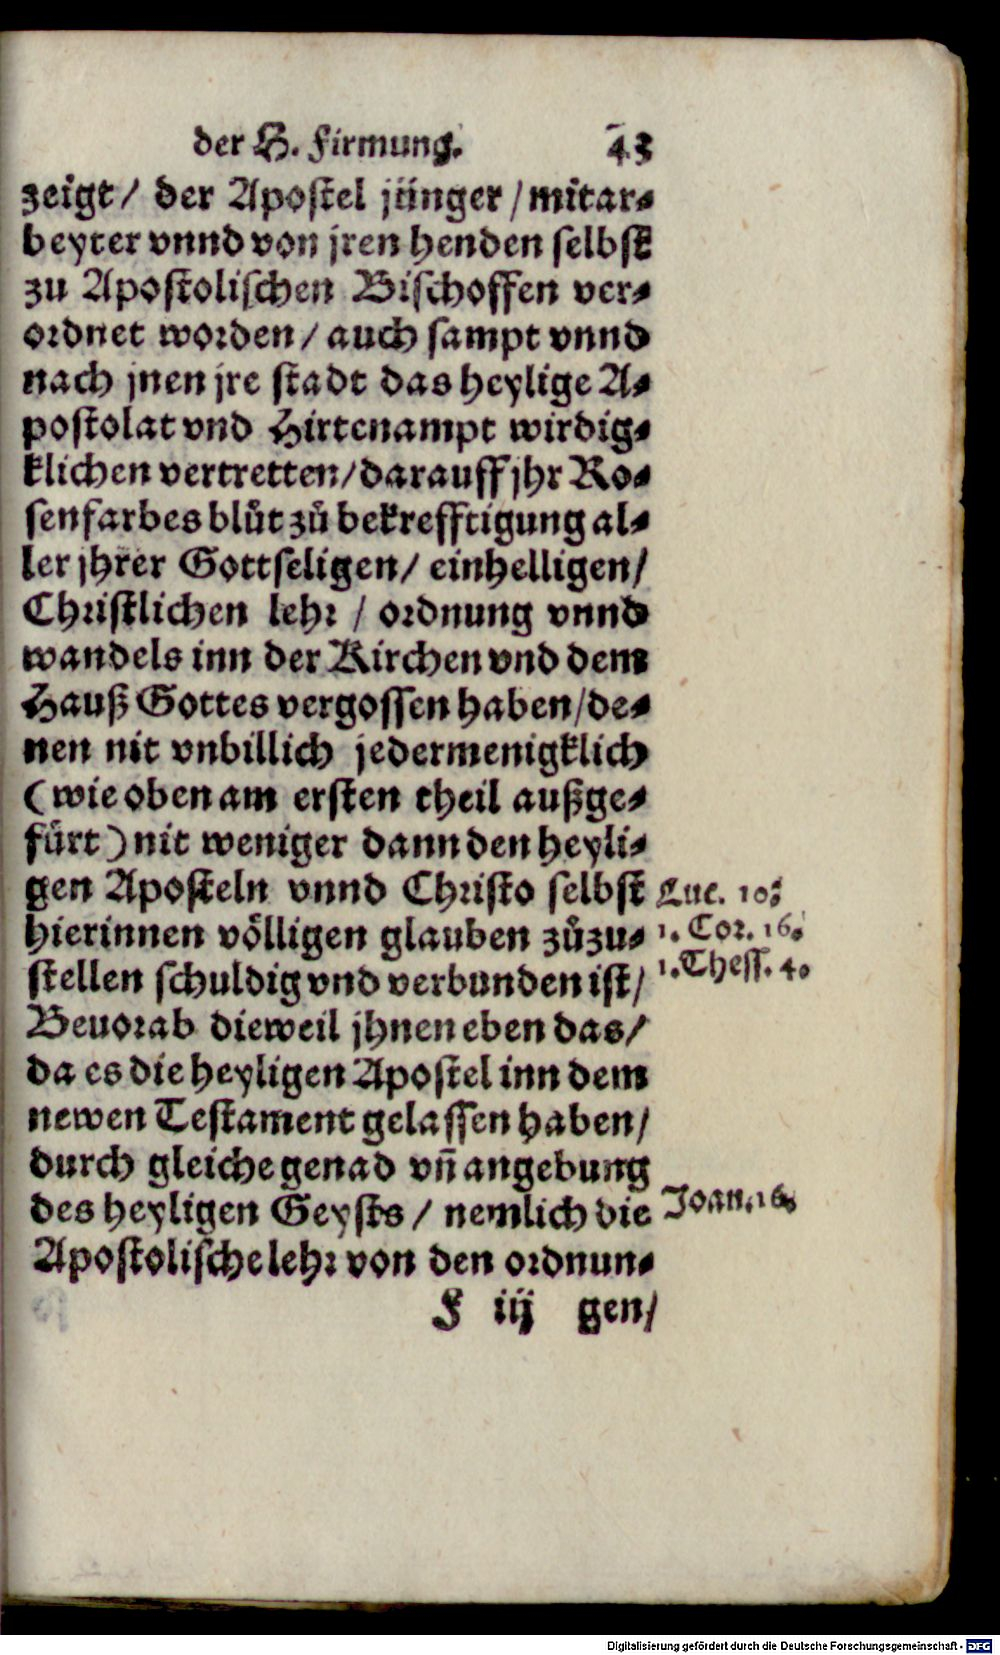 der H. Firmung. 43
zeigt/ der Apostel jünger/mitar-
beyter vnnd von jren henden selbst
zu Apostolischen Bischoffen ver-
ordnet worden/ auch sampt vnnd
nach jnen jre stadt das heylige A-
postolat vnd Hirtenampt wirdig-
klichen vertretten/darauff jhr Ro-
senfarbes blůt zů bekrefftigung al-
ler jhrer Gottseligen/ einhelligen/
Christlichen lehr/ ordnung vnnd
wandels inn der Kirchen vnd dem
Hauß Gottes vergossen haben/de-
nen nit vnbillich jedermenigklich
(wie oben am ersten theil außge-
fürt) nit weniger dann den heyli-
gen Aposteln vnnd Christo selbst
Luc. 10.
hierinnen völligen glauben zůzu-
1. Cor. 16.
stellen schuldig vnd verbunden ist/
1. Thess. 4.
Beuorab dieweil jhnen eben das/
da es die heyligen Apostel inn dem
newen Testament gelassen haben/
durch gleiche genad vñ angebung
des heyligen Geysts/ nemlich die
Joan. 16.
Apostolische lehr von den ordnun-
F iij gen/
Digitalisierung gefördert durch die Deutsche Forschungsgemeinschaft - DFG